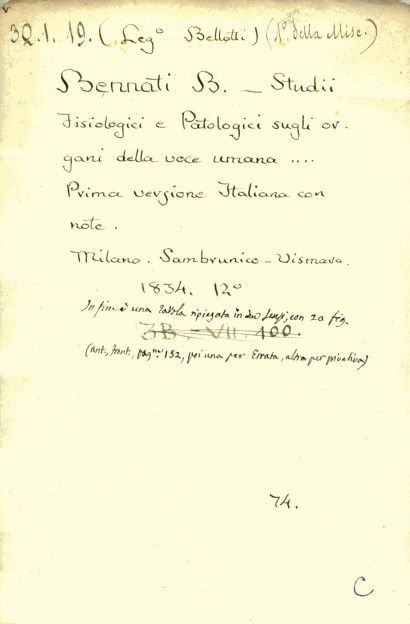 3Q.1.19. (Leg.º Bellotti) (1º della Misc.)
Bennati B. _ Studii
Fisiologici e Patologici sugli or-
gani della voce umana ....
Prima versione Italiana con
note.
Milano. Sambrunico - Vismara.
1834. 12º
In fin è una Tavola ripiegata in due sensi, con 20 fig.
3B - VII. 100.
(Ant., front., pag.ne 152, poi una per Errata, altra per privativa)
74.
C